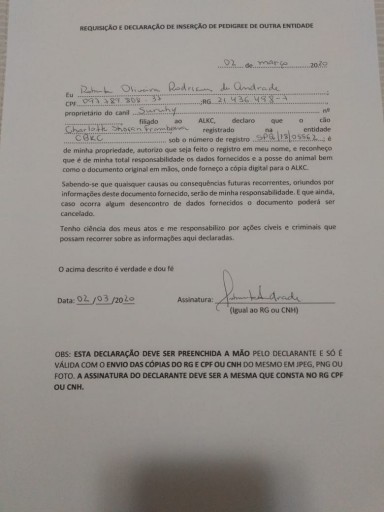 REQUISIÇÃO E DECLARAÇÃO DE INSERÇÃO DE PEDIGREE DE OUTRA ENTIDADE
02 de março 2020
Eu Oliveira Rodrigues de Andrade
CPF RG
proprietário do canil nº
filiado ao ALKC, declaro que o cão
Charlotte registrado na entidade
CBKC sob o número de registro , é
de minha propriedade, autorizo que seja feito o registro em meu nome, e reconheço
que é de minha total responsabilidade os dados fornecidos e a posse do animal bem
como o documento original em mãos, onde forneço a cópia digital para o ALKC.
Sabendo-se que quaisquer causas ou consequências futuras recorrentes, oriundos por
informações deste documento fornecido, serão de minha responsabilidade. E que ainda,
caso ocorra algum desencontro de dados fornecidos o documento poderá ser
cancelado.
Tenho ciência dos meus atos e me responsabilizo por ações cíveis e criminais que
possam recorrer sobre as informações aqui declaradas.
O acima descrito é verdade e dou fé
Data: 02/03/2020 Assinatura:
(Igual ao RG ou CNH)
OBS: ESTA DECLARAÇÃO DEVE SER PREENCHIDA A MÃO PELO DECLARANTE E SÓ É
VÁLIDA COM O ENVIO DAS CÓPIAS DO RG E CPF OU CNH DO MESMO EM JPEG, PNG OU
FOTO. A ASSINATURA DO DECLARANTE DEVE SER A MESMA QUE CONSTA NO RG CPF
OU CNH.